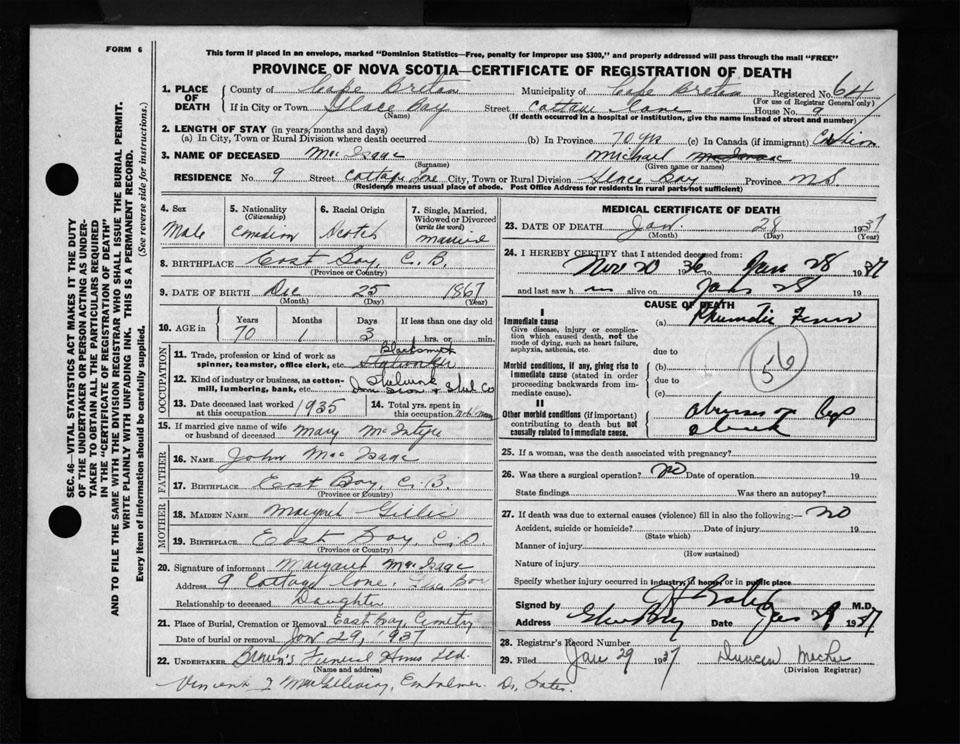 FORM 6
This form if placed in an envelope, marked "Dominion Statistics—Free, penalty for improper use $300," and properly addressed will pass through the mail "FREE"
PROVINCE OF NOVA SCOTIA—CERTIFICATE OF REGISTRATION OF DEATH
SEC. 46—VITAL STATISTICS ACT MAKES IT THE DUTY
OF THE UNDERTAKER OR PERSON ACTING AS UNDER-
TAKER TO OBTAIN ALL THE PARTICULARS REQUIRED
IN THE "CERTIFICATE OF REGISTRATION OF DEATH"
AND TO FILE THE SAME WITH THE DIVISION REGISTRAR WHO SHALL ISSUE THE BURIAL PERMIT.
WRITE PLAINLY WITH UNFADING INK. THIS IS A PERMANENT RECORD.
Every item of information should be carefully supplied.
(See reverse side for instructions.)
1. PLACE OF DEATH County of Cape Breton Municipality of Cape Breton Registered No. 64
(For use of Registrar General only)
If in City or Town Glace Bay Street Cottage Lane House No. 9
(Name) (If death occurred in a hospital or institution, give the name instead of street and number)
2. LENGTH OF STAY (in years, months and days)
(a) In City, Town or Rural Division where death occurred (b) In Province 70 yrs (c) In Canada (if immigrant)
3. NAME OF DECEASED Mac Isaac Michael
(Surname) (Given name or names)
RESIDENCE No. 9 Street Cottage Lne City, Town or Rural Division Glace Bay Province N.S.
(Residence means usual place of abode. Post Office Address for residents in rural parts not sufficient)
4. Sex
Male
5. Nationality
(Citizenship)
Canadian
6. Racial Origin
Scotch
7. Single, Married, Widowed or Divorced
(write the word)
Married
8. BIRTHPLACE East Bay, C.B.
(Province or Country)
9. DATE OF BIRTH Dec 25 1867
(Month) (Day) (Year)
10. AGE in Years Months Days If less than one day old
70 1 3 hrs. or min.
OCCUPATION
11. Trade, profession or kind of work as spinner, teamster, office clerk, etc. Blacksmith
12. Kind of industry or business, as cotton-mill, lumbering, bank, etc. Dom Iron & Steel Co
13. Date deceased last worked at this occupation 1935 14. Total yrs. spent in this occupation
15. If married give name of wife or husband of deceased Mary McIntyre
FATHER
16. NAME John Mac Isaac
17. BIRTHPLACE East Bay, C.B.
(Province or Country)
MOTHER
18. MAIDEN NAME Margaret Gillis
19. BIRTHPLACE East Bay, C.B.
(Province or Country)
20. Signature of informant Margaret Mac Isaac
Address 9 Cottage Lane, Glace Bay
Relationship to deceased Daughter
21. Place of Burial, Cremation or Removal East Bay, Cemetry
Date of burial or removal Jan 29, 1937
22. UNDERTAKER Brown's Funeral Home Ltd.
(Name and address)
Vincent J MacGillivray, Embalmer. Dr. Bates
MEDICAL CERTIFICATE OF DEATH
23. DATE OF DEATH Jan. 28 1937
(Month) (Day) (Year)
24. I HEREBY CERTIFY that I attended deceased from:
Nov 20 1936 to Jan 28 1937
and last saw h im alive on Jan 28 19
CAUSE OF DEATH
I
Immediate cause
Give disease, injury or complication which caused death, not the mode of dying, such as heart failure, asphyxia, asthenia, etc.
(a) Rhumatic Fever
due to
Morbid conditions, if any, giving rise to immediate cause (stated in order proceeding backwards from immediate cause).
(b)
due to
(c)
56
II
Other morbid conditions (if important) contributing to death but not causally related to immediate cause.
25. If a woman, was the death associated with pregnancy?
26. Was there a surgical operation? no Date of operation 19
State findings Was there an autopsy?
27. If death was due to external causes (violence) fill in also the following:— no
Accident, suicide or homicide? Date of injury 19
(State which)
Manner of injury
(How sustained)
Nature of injury
Specify whether injury occurred in industry, in home, or in public place
Signed by M.D.
Address Glace Bay Date Jan 29 1937
28. Registrar's Record Number
29. Filed Jan 29 1937 Duncan
(Division Registrar)